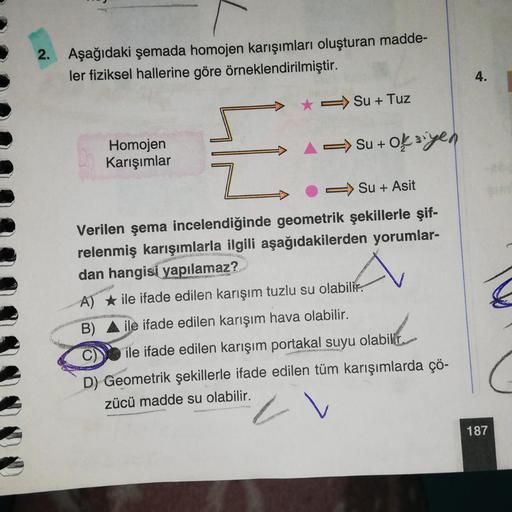 2. Aşağıdaki şemada homojen karışımları oluşturan madde-
ler fiziksel hallerine göre örneklendirilmiştir.
4.
★ ⇒ Su + Tuz
Homojen
Karışımlar
▲ ⇒ Su + O₂ksiyen
● ⇒ Su + Asit
Verilen şema incelendiğinde geometrik şekillerle şif-
relenmiş karışımlarla ilgili aşağıdakilerden yorumlar-
dan hangisi yapılamaz?
A) ★ ile ifade edilen karışım tuzlu su olabilir.
B) ▲ ile ifade edilen karışım hava olabilir.
C) ● ile ifade edilen karışım portakal suyu olabilir.
D) Geometrik şekillerle ifade edilen tüm karışımlarda çö-
zücü madde su olabilir.
187